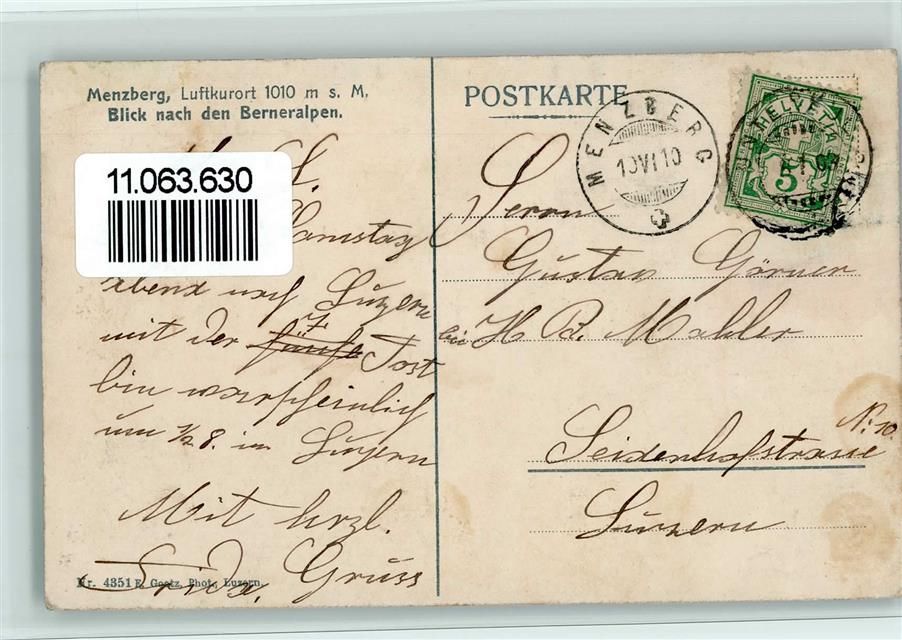 Menzberg, Luftkurort 1010 m s. M.
Blick nach den Berneralpen.
11.063.630
Samstag
abend nach Luzern
mit der 7. Post
bin warscheinlich
um ½ 8. in Luzern
Mit herzl.
Gruss
Frida.
Nr. 4351 E. Goetz, Phot., Luzern.
POSTKARTE
MENZBERG
10 VI 10
HELVETIA
5
Herrn
Gustav Görner
bei H. R. Mahler
Seidenhofstrasse
N: 10.
Luzern